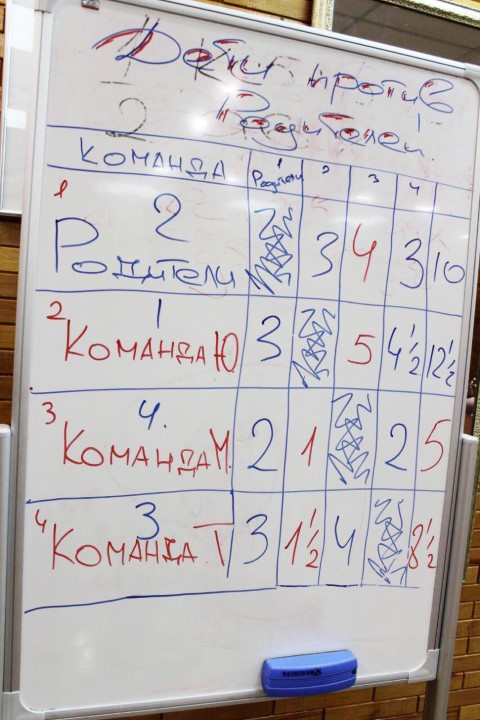 Дети против
Родителей!
КОМАНДА 1 Родители 2 3 4
1 2
Родители 3 4 3 10
2 1
Команда Ю 3 5 4 1/2 12 1/2
3 4.
Команда М. 2 1 2 5
4 3
Команда Т 3 1 1/2 4 8 1/2